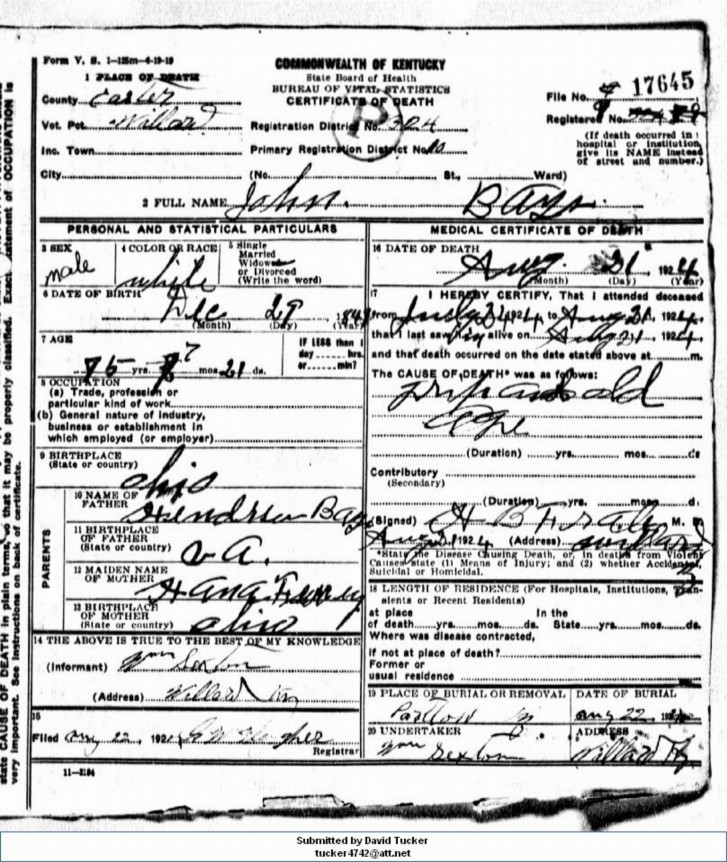 Form V. S. 1—125m—6-19-19
COMMONWEALTH OF KENTUCKY
State Board of Health
BUREAU OF VITAL STATISTICS
CERTIFICATE OF DEATH
1 PLACE OF DEATH
County Carter
Vot. Pct. Willard
Inc. Town
City (No. St., Ward)
Registration District No. 324
Primary Registration District No.
File No. 17645
Registered No.
(If death occurred in
hospital or institution,
give its NAME instead
of street and number.)
2 FULL NAME John Bays
PERSONAL AND STATISTICAL PARTICULARS
3 SEX
male
4 COLOR OR RACE
white
5 Single
Married
Widowed
or Divorced
(Write the word)
6 DATE OF BIRTH
Dec 29 184
(Month) (Day) (Year)
7 AGE
75 yrs. 7 mos. 21 ds.
IF LESS than 1
day hrs.
or min?
8 OCCUPATION
(a) Trade, profession or
particular kind of work
(b) General nature of industry,
business or establishment in
which employed (or employer)
9 BIRTHPLACE
(State or country)
ohio
PARENTS
10 NAME OF
FATHER
Bays
11 BIRTHPLACE
OF FATHER
(State or country)
va.
12 MAIDEN NAME
OF MOTHER
Hana
13 BIRTHPLACE
OF MOTHER
(State or country)
ohio
14 THE ABOVE IS TRUE TO THE BEST OF MY KNOWLEDGE
(Informant) Wm Sexton
(Address) Willard Ky
15
Filed Aug 22, 192
Registrar
11—3184
MEDICAL CERTIFICATE OF DEATH
16 DATE OF DEATH
Aug. 21 1924
(Month) (Day) (Year)
17
I HEREBY CERTIFY, That I attended deceased
from July 1924 to Aug 21, 1924
that I last saw him alive on Aug 21 1924
and that death occurred on the date stated above at m.
The CAUSE OF DEATH* was as follows:
old
age
(Duration) yrs. mos. ds
Contributory
(Secondary)
(Duration) yrs. mos. d.
(Signed) H B M. D.
Aug 1924 (Address) Willard
*State the Disease Causing Death, or, in deaths from Violent
Causes state (1) Means of Injury; and (2) whether Accidental,
Suicidal or Homicidal.
18 LENGTH OF RESIDENCE (For Hospitals, Institutions, Tran-
sients or Recent Residents)
at place In the
of death yrs. mos. ds. State yrs. mos. ds.
Where was disease contracted,
if not at place of death?
Former or
usual residence
19 PLACE OF BURIAL OR REMOVAL
DATE OF BURIAL
Aug 22
20 UNDERTAKER
Wm Sexton
ADDRESS
Willard Ky
state CAUSE OF DEATH in plain terms, so that it may be properly classified. Exact statement of OCCUPATION is
very important. See instructions on back of certificate.
Submitted by David Tucker
tucker4742@att.net